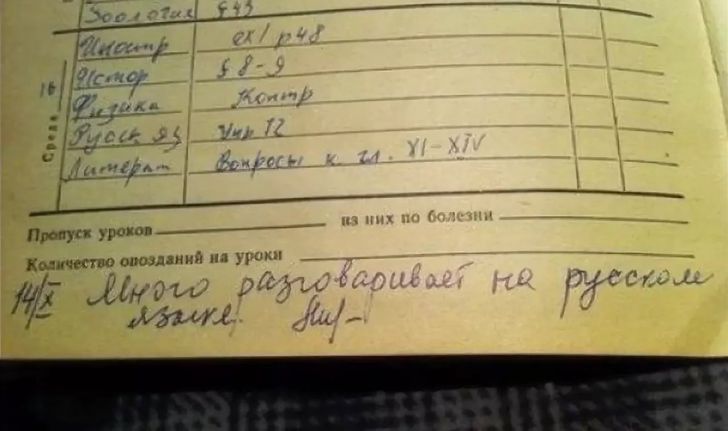 Зоология § 43
Иностр ex 1 p 48
Истор § 8-9
16
Физика Контр
Среда
Русск яз Упр 12
Литерат Вопросы к гл. XI-XIV
Пропуск уроков из них по болезни
Количество опозданий на уроки
14/X Много разговаривает на русском
языке.